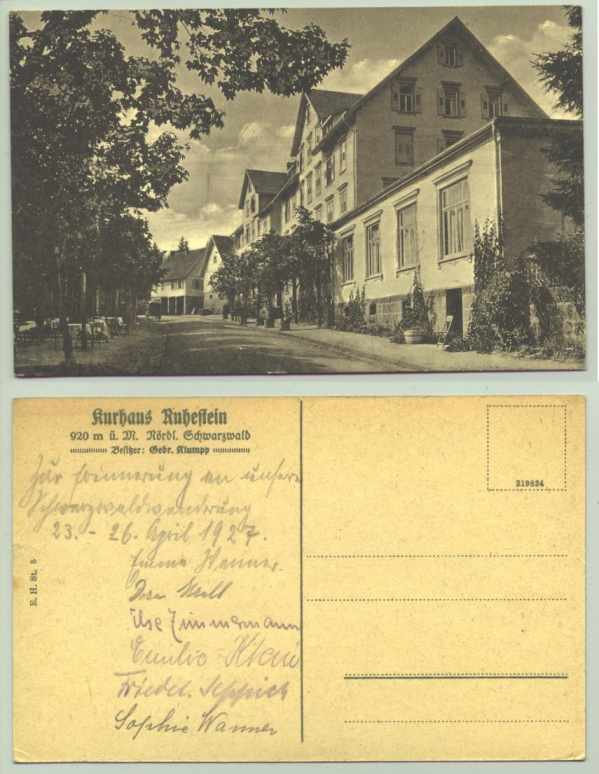 Kurhaus Ruhestein
920 m ü. M. Nördl. Schwarzwald
Besitzer: Gebr. Klumpp
319824
Zur Erinnerung an unsere
Schwarzwaldwanderung
23. - 26. April 1927.
Emma Wanner.
Ilse Zimmermann
Emilie
Friedel
Sophie Wanner
E. H. St. 5